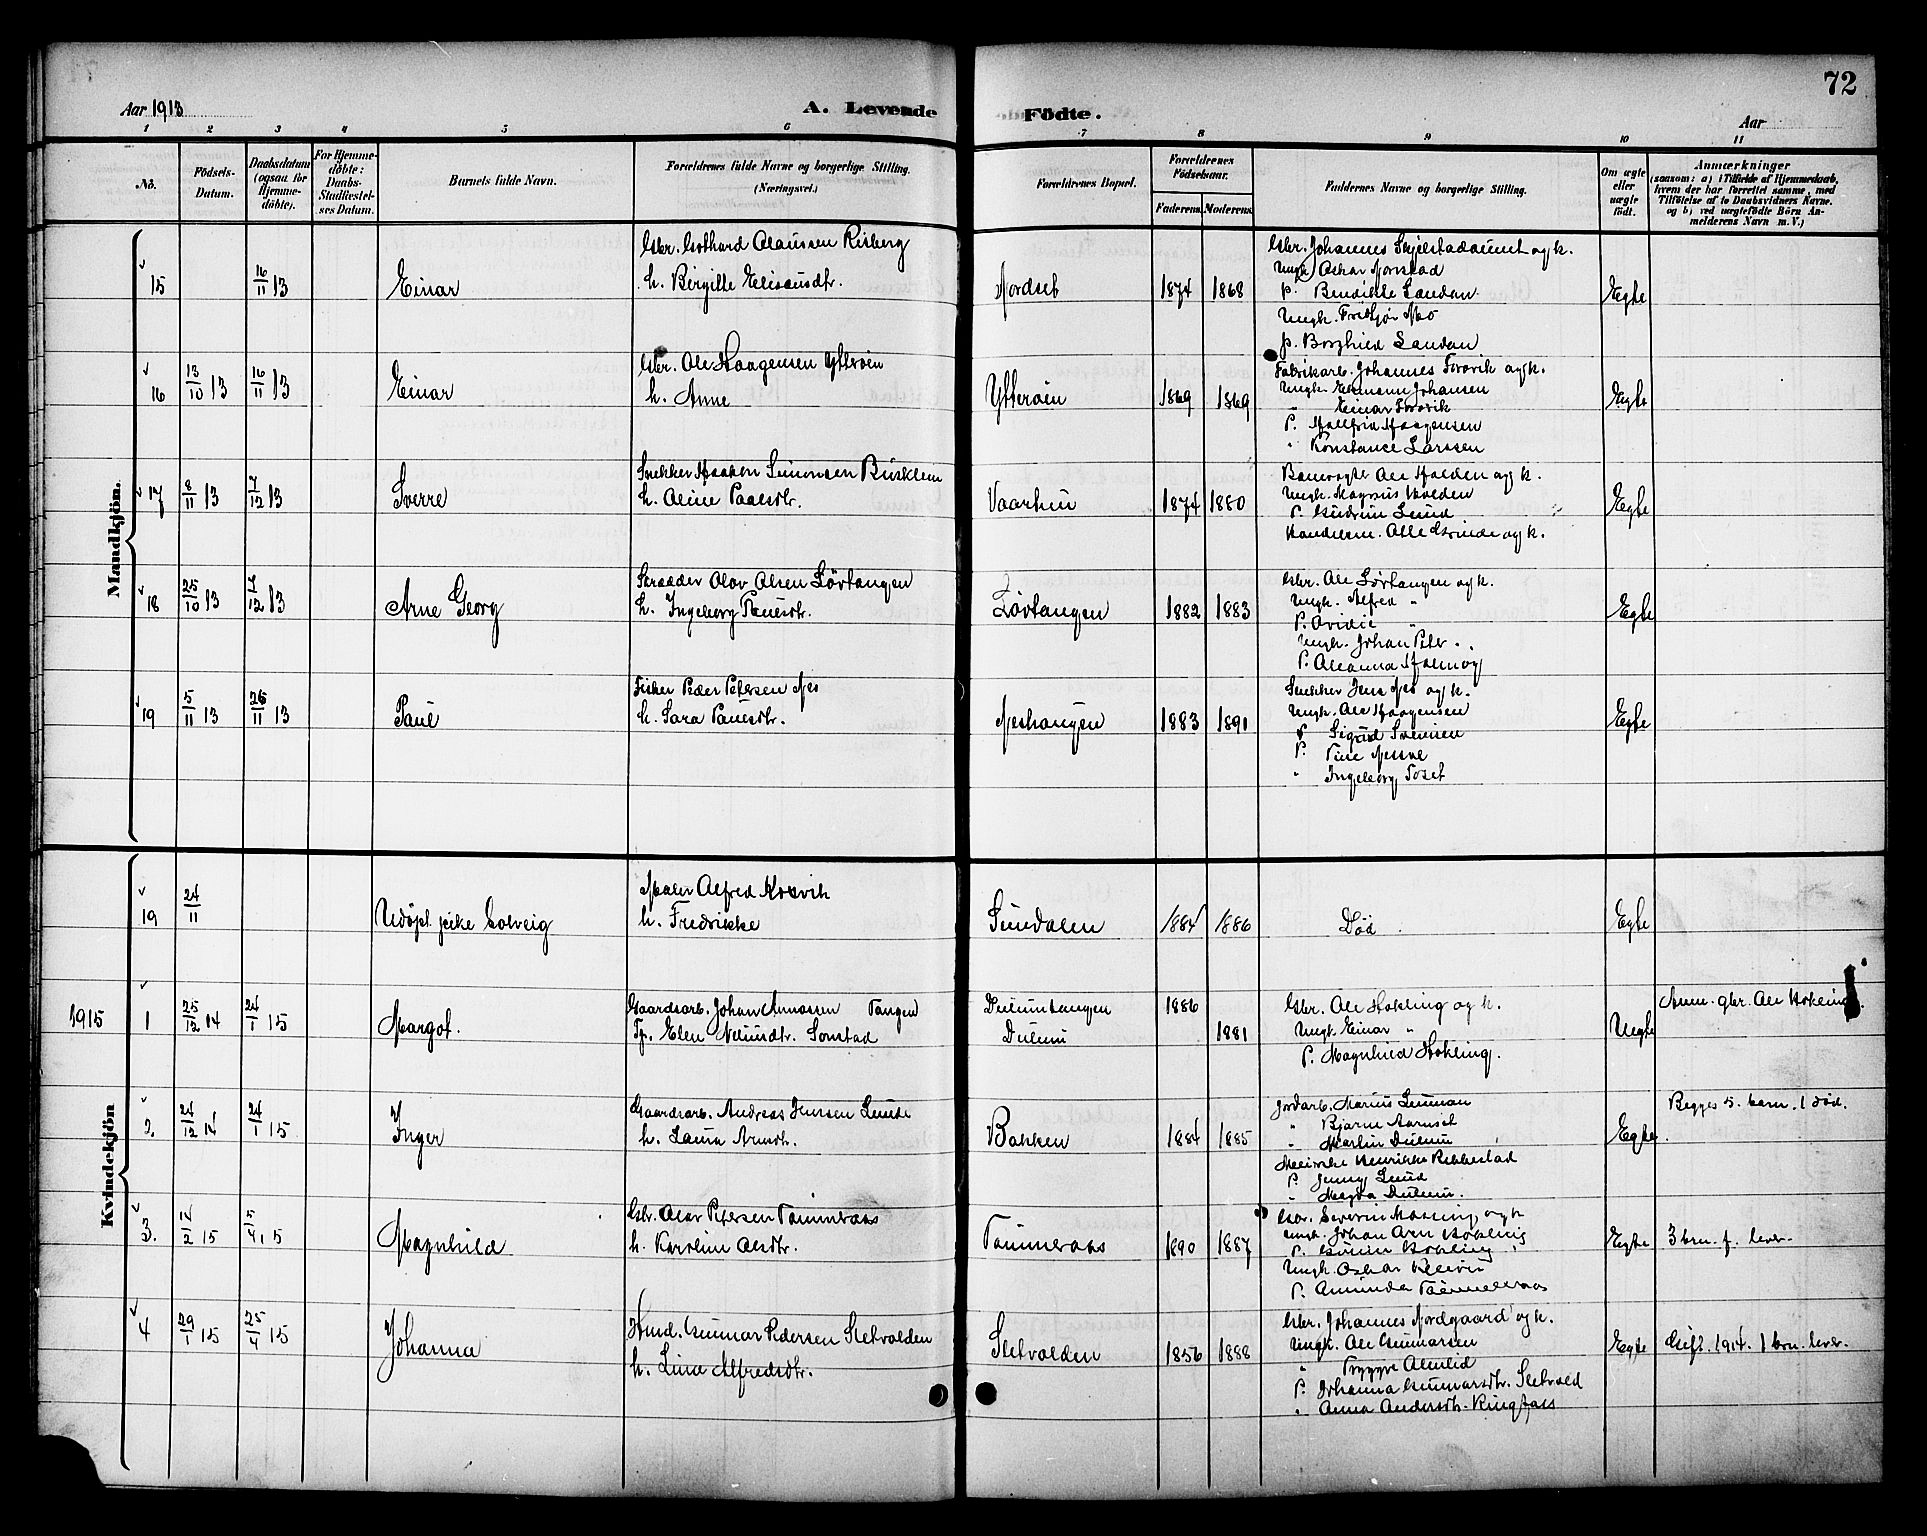 72
Aar 1913
A. Levende Födte.
Aar
1 2 3 4 5 6 7 8 9 10 11
No.
Födsels-Datum.
Daabsdatum (ogsaa for Hjemme-döbte).
For Hjemme-döbte: Daabs-Stadfæstel-ses Datum.
Barnets fulde Navn.
Forældrenes fulde Navne og borgerlige Stilling. (Næringsvei.)
Forældrenes Bopæl.
Forældrenes Födselsaar.
Faderens.
Moderens.
Faddernes Navne og borgerlige Stilling.
Om ægte eller uægte födt.
Anmærkninger
(saasom: a) i Tilfælde af Hjemmedaab,
hvem der har forrettet samme, med
Tilföielse af to Daabsvidners Navne.
og b) ved uægtefödte Börn An-
melderens Navn m. V.)
Mandkjön.
15 16/11 13 Einar
Gbr. Gothard Clausen Risberg
h. Birgitte Elisæusdtr.
Nordset 1874 1868
Gbr. Johannes Skjelstadaunet og k.
Ungk. Oskar Norstad
p. Bendikte Landan
Ungk. Fridtjör Mo
p. Borghild Landan
Egte
16 13/10 13 16/11 13 Einar
Gbr. Ole Haagensen Ytterøien
h. Anne
Ytterøien 1869 1869
Fabrikarb. Johannes Forvik og k.
Ungk. Hermann Johansen
" Einar Forvik
P. Hallfrid Haagensen
" Konstance Larssen
Egte
17 8/11 13 7/12 13 Sverre
Snekker Haakon Simonsen Busklein
h. Oline Paalsdtr.
Vaarheim 1874 1880
Banevogter Ole Halden og k.
Ungk. Magnus Halden
P. Gudrun Lund
Handelsm. Atle Grinde og k.
Egte
18 25/10 13 7/12 13 Arne Georg
Skrædder Olav Olsen Lövtangen
h. Ingeborg Paulsdtr.
Lövtangen 1882 1883
Gbr. Ole Lövtangen og k.
Ungk. Alfred "
P. Ovidie "
Ungk. Johan Peter "
P. Oleanna
Egte
19 5/11 13 26/11 13 Paul
Fisker Peder Petersen Næs
h. Sara Paulsdtr.
Neshangen 1883 1891
Snekker Jens Næs og k.
Ungk. Ole Haagensen
P. Sigrid
P. Tine
" Ingeborg Toset
Egte
Kvindekjön
19 24/11 Udöpt pike Solveig
Maler Alfred Hosvik
h. Fredrikke
Sundalen 1884 1886
Död
Egte
1915 1 25/12 14 24/1 15 Margot.
Gaardsarb. Johan Arnossen Tangen
Fp. Elen Sonstad
Dulumtangen 1886
Dulum 1881
Gbr. Ole Hokling og k.
Ungk. Einar "
P. Magnhild Hokling.
Uegte
Anm. gbr. Ole Hokling.
2 24/12 14 24/1 15 Inger
Gaardsarb. Andreas Jenssen Lunde
h. Laura Arnsdtr.
Bakken 1884 1885
Jordarb. Marius Lunman
" Bjarne Aarnset
" Martin Dulum
Meierske Henrikke Rekkestad
P. Jenny Lund
" Magda Dulum.
Egte.
Begges 5. barn. 1 död.
3. 12/2 15 5/4 15 Magnhild
Gbr. Olav Petersen Tømmeraas
h. Karoline Olsdtr.
Tømmeraas 1890 1887
Gbr. Severin Hokling og k
Ungk. Johan Arn Hokling
P. Gunun Hokling
Ungk. Oskar Kleivin
P. Aminda Tømmeraas
Egte
3 brn. f. lever.
4 29/1 15 25/4 15 Johanna
Hmd. Gunnar Pedersen Sletvolden
h. Lina Alfredsdtr.
Sletvolden 1856 1888
Gbr. Johannes Nordgaard og k.
Ungk. Ole Gunnarsen
" Tryggve Almlid
P. Johanna Gunnarsdtr. Sletvold
" Anna Andersdtr. Ringfass
Egte
Gift 1914. 1 brn. lever.